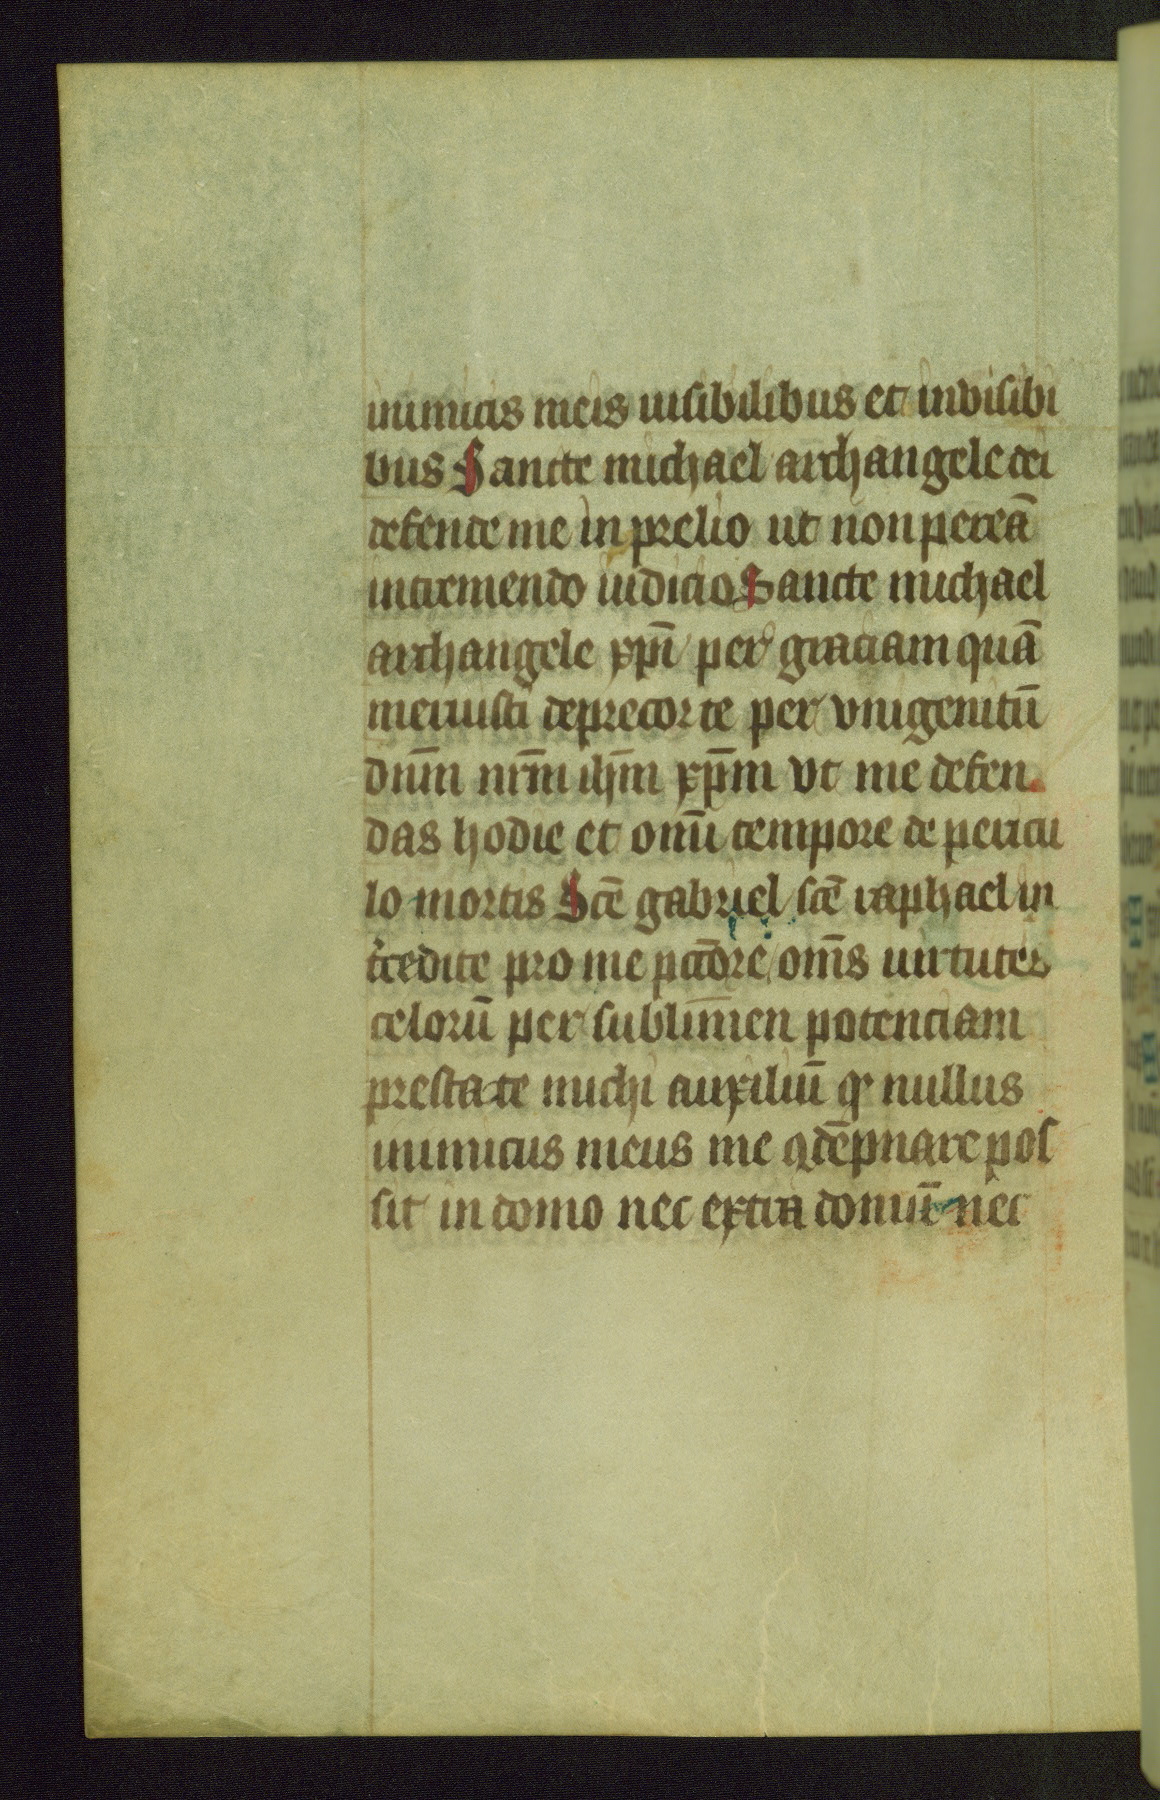 inimicis meis uisibilibus et invisibi
bus Sancte michael archangele dei
defende me in prelio ut non pereā
in tremendo iudicio Sancte michael
archangele xp̄i per graciam quā
meruisti deprecor te per vnigenitū
dn̄m nr̄m ih̄m xp̄m vt me defen
das hodie et omī tempore de pericu
lo mortis Sc̄e gabriel sc̄e raphael in
t̉cedite pro me pc̄c̄ore om̄s uirtutes
celorū per sublim̄en potenciam
prestate michi auxiliū qͬ nullus
inimicus meus me ꝯdēpnare pos
sit in domo nec extra domū nec